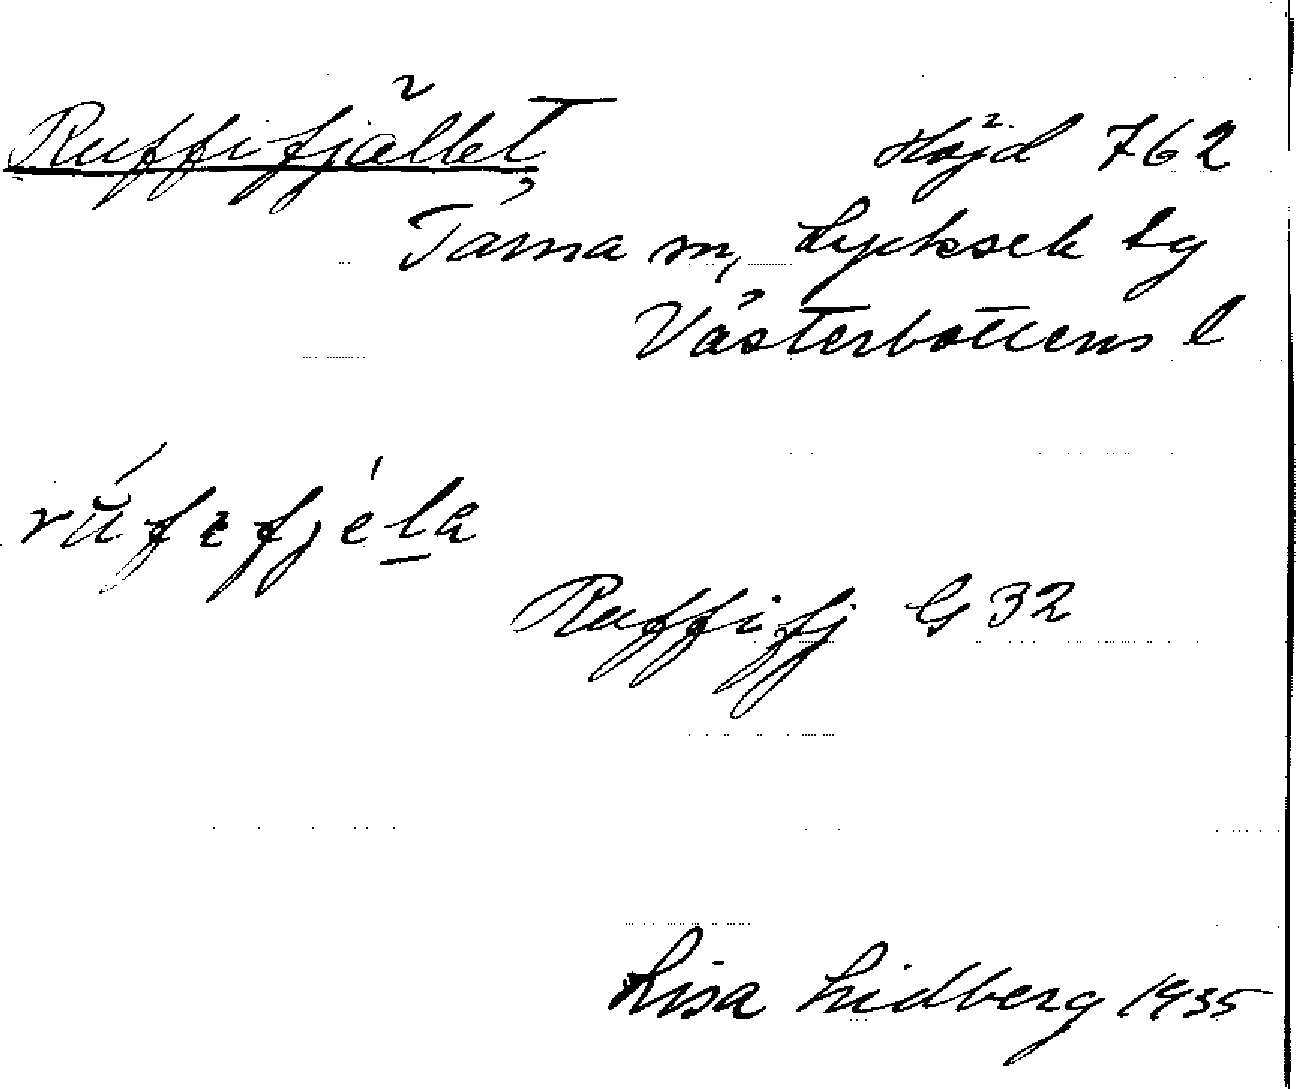 Ruffifjället Höjd 762
Tärna sn, Lycksele lg
Västerbottens l
rúfefjéla
Ruffifj G 32
Lisa Lidberg 1935